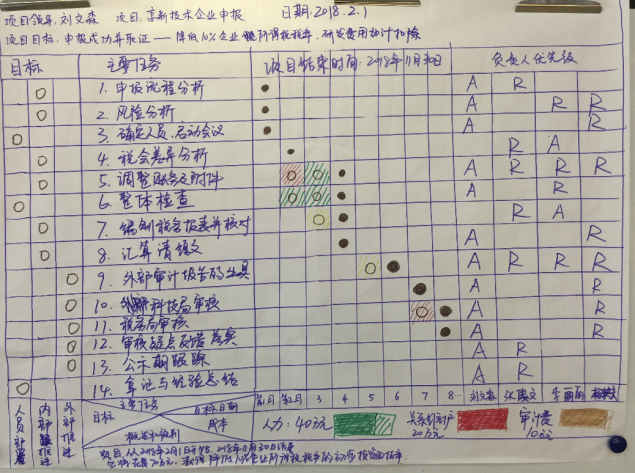 项目领导：刘文森 项目：高新技术企业申报 日期：2018.2.1
项目目标：申报成功并取证——降低10%企业所得税税率、研发费用加计扣除
目标 主要任务 项目结束时间：2018年11月30日 负责人优先级
1. 申报流程分析 A R
2. 风险分析 A R R
3. 确定人员、启动会议 A R
4. 税会差异分析 R A
5. 调整账务及附件 A R R R
6. 整体检查 A R
7. 编制税务报表并核对 R A
8. 汇算清缴 A R
9. 外部审计报告的出具 A R R R
10. 科技局审核 A R
11. 税务局审核 A R
12. 审核疑点反馈落实 A R
13. 公示期跟踪 A R
14. 拿证与经验总结
人员部署
内部推进
外部推进
主要任务
目标
目标日期
成本
第1月 第2月 3 4 5 6 7 8… 刘文森
人力：40万元
20万元
审计费
10万元
项目从2018年2月1日开始，2018年11月30日结束